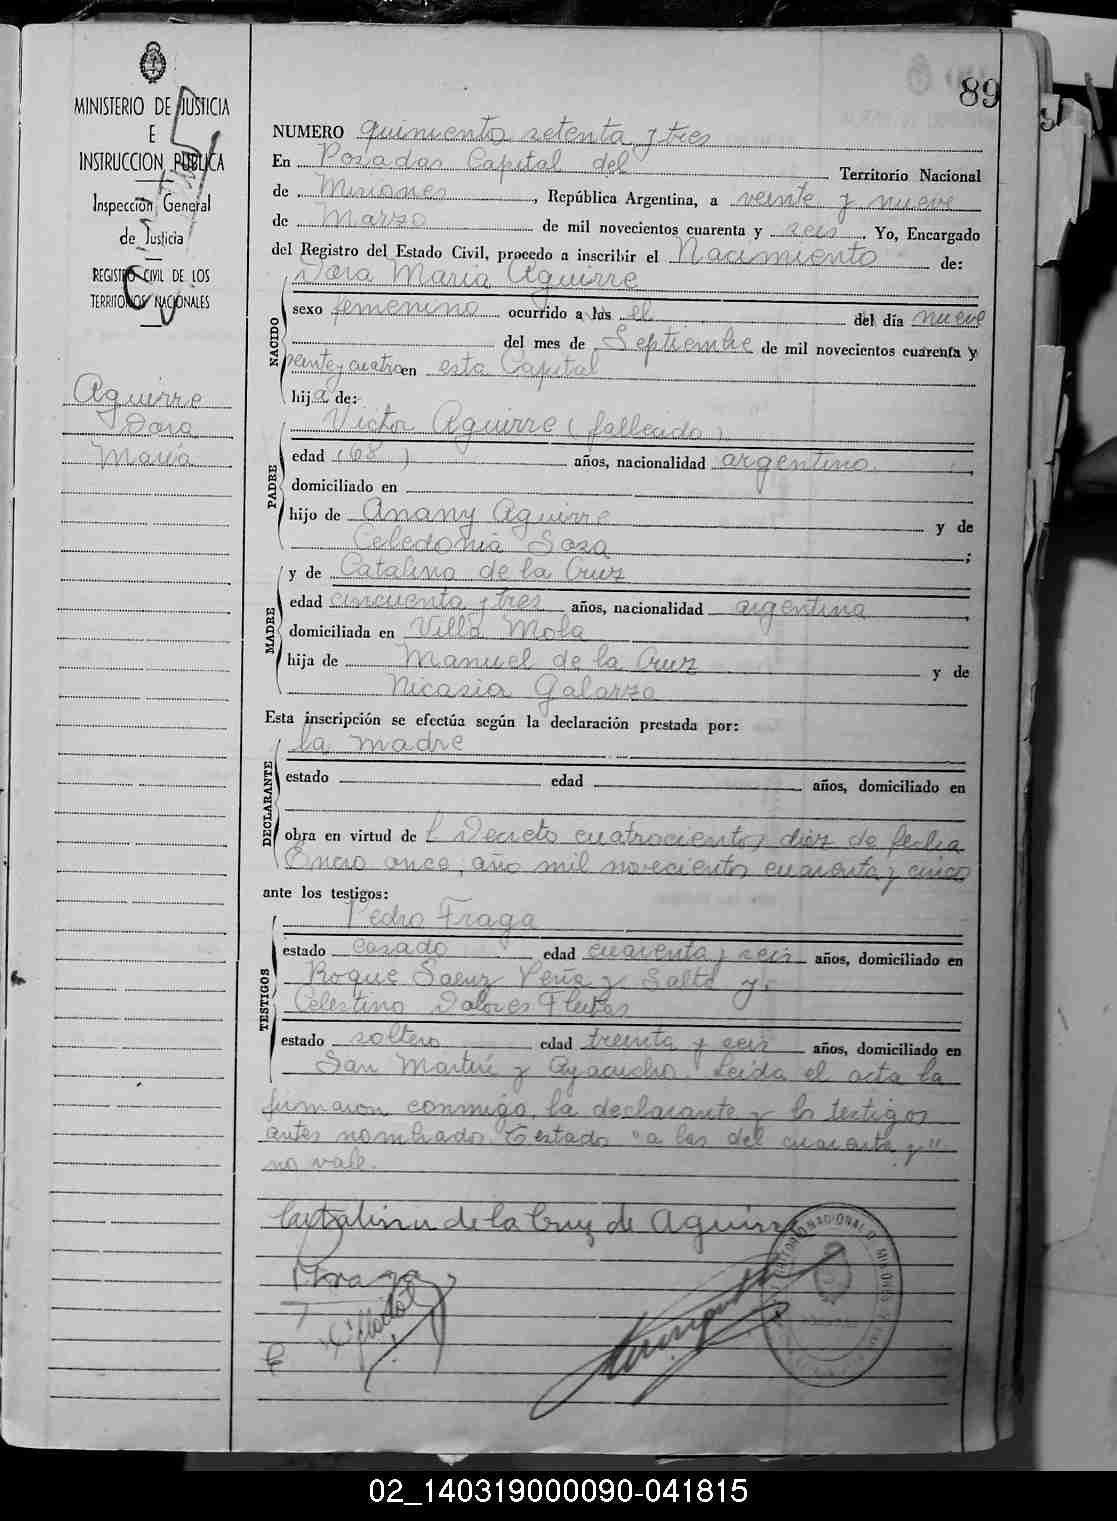 89
MINISTERIO DE JUSTICIA
E
INSTRUCCION PUBLICA
Inspección General
de Justicia
REGISTRO CIVIL DE LOS
TERRITORIOS NACIONALES
Aguirre
Dora
María
NUMERO quinientos setenta y tres
En Posadas Capital del Territorio Nacional
de Misiones, República Argentina, a veinte y nueve
de Marzo de mil novecientos cuarenta y seis. Yo, Encargado
del Registro del Estado Civil, procedo a inscribir el Nacimiento de:
NACIDO
Dora María Aguirre
sexo femenino ocurrido a las el del día nueve
del mes de Septiembre de mil novecientos cuarenta y
veinte y cuatro en esta Capital
hija de:
PADRE
Victor Aguirre (fallecido)
edad (68) años, nacionalidad argentino
domiciliado en
hijo de Anany Aguirre y de
Celedonia Sosa ;
MADRE
y de Catalina de la Cruz
edad cincuenta y tres años, nacionalidad argentina
domiciliada en Villa Mola
hija de Manuel de la Cruz y de
Nicasia Galarza
Esta inscripción se efectúa según la declaración prestada por:
DECLARANTE
la madre
estado edad años, domiciliado en
obra en virtud de l Decreto cuatrocientos diez de fecha
Enero once, año mil novecientos cuarenta y cinco
ante los testigos:
TESTIGOS
Pedro Fraga
estado casado edad cuarenta y seis años, domiciliado en
Roque Saenz Peña y Salta y
Celestino Dolores Fleitas
estado soltero edad treinta y seis años, domiciliado en
San Martín y Ayacucho. Leida el acta la
firmaron conmigo, la declarante y los testigos
antes nombrados. Testado "a las del cuarenta y"
no vale.
Catalina de la Cruz de Aguirre
PFraga
02_140319000090-041815